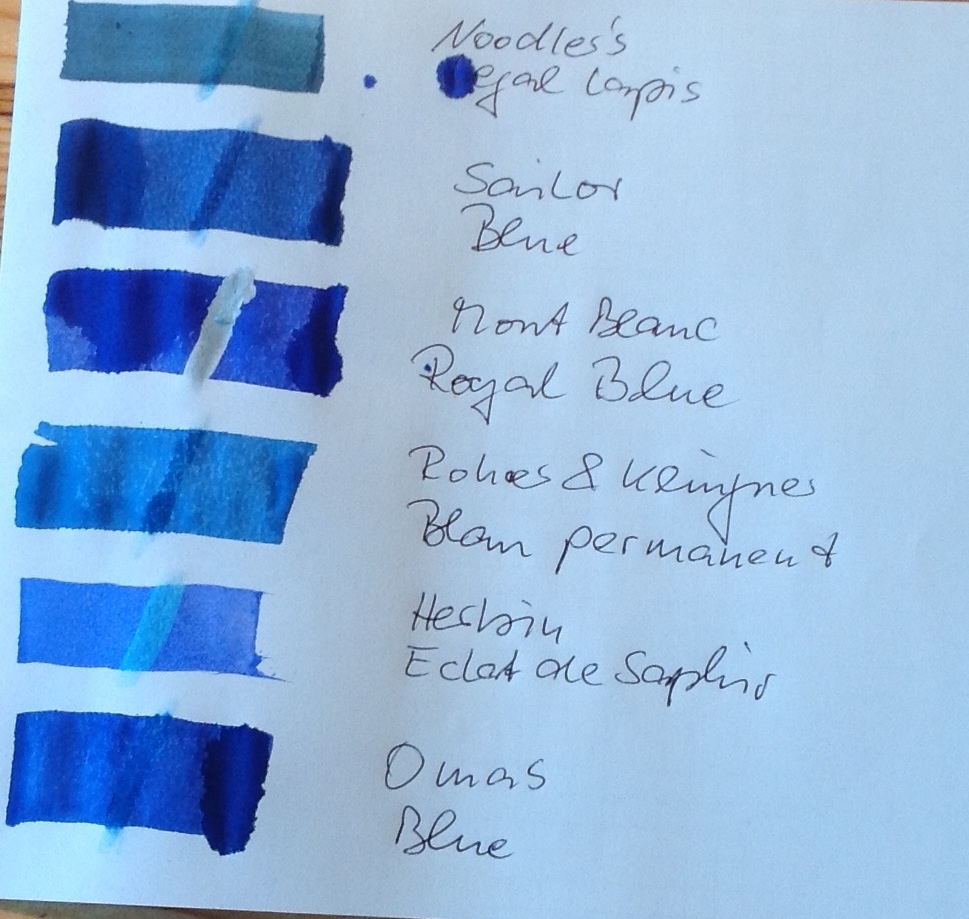 Noodles's
egal Lapis
Sailor
Blue
Mont Blanc
Royal Blue
Rohrer & Klingner
Blau permanent
Herbin
Eclat de Saphir
Omas
Blue